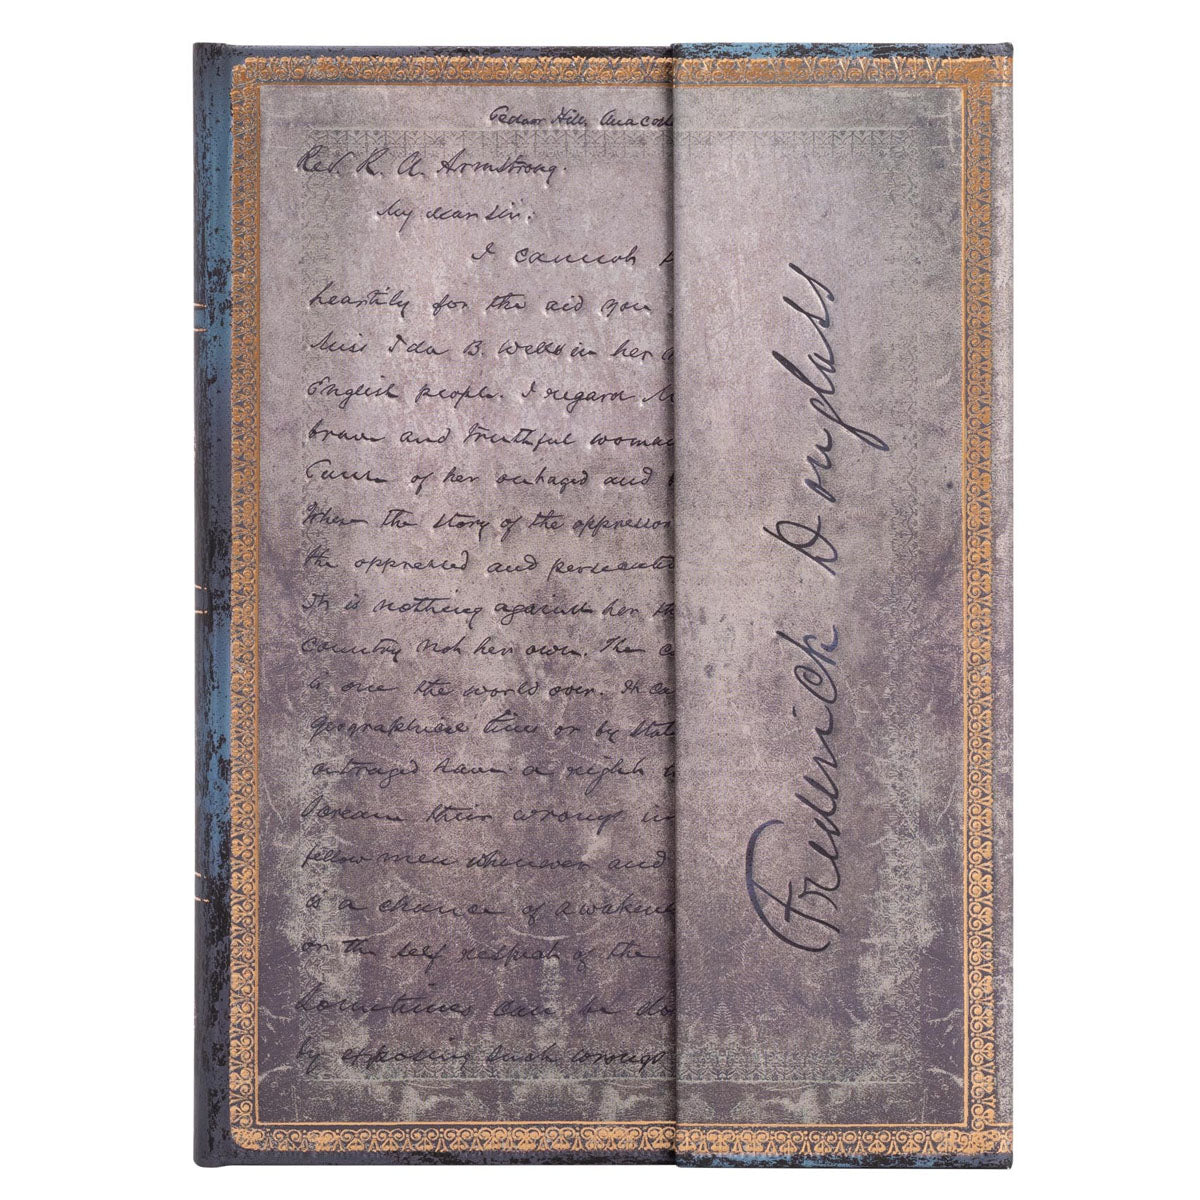 Cedar Hill Anacos
Rev. R. A. Armstrong.
My dear sir:
I cannot
heartily for the aid you
Miss Ida B. Wells in her
English people. I regard M
brave and truthful woma
Cause of her outraged and
When the story of the oppresso
the oppressed and persecute
It is nothing against her th
country not her own. The c
is one the world over. It ca
geographical lines or by stat
outraged have a right
scream their wrongs in
fellow men whenever and
is a chance of awakeni
or the self respect of the
Sometimes can be do
by exposing such wrongs
Frederick Douglass